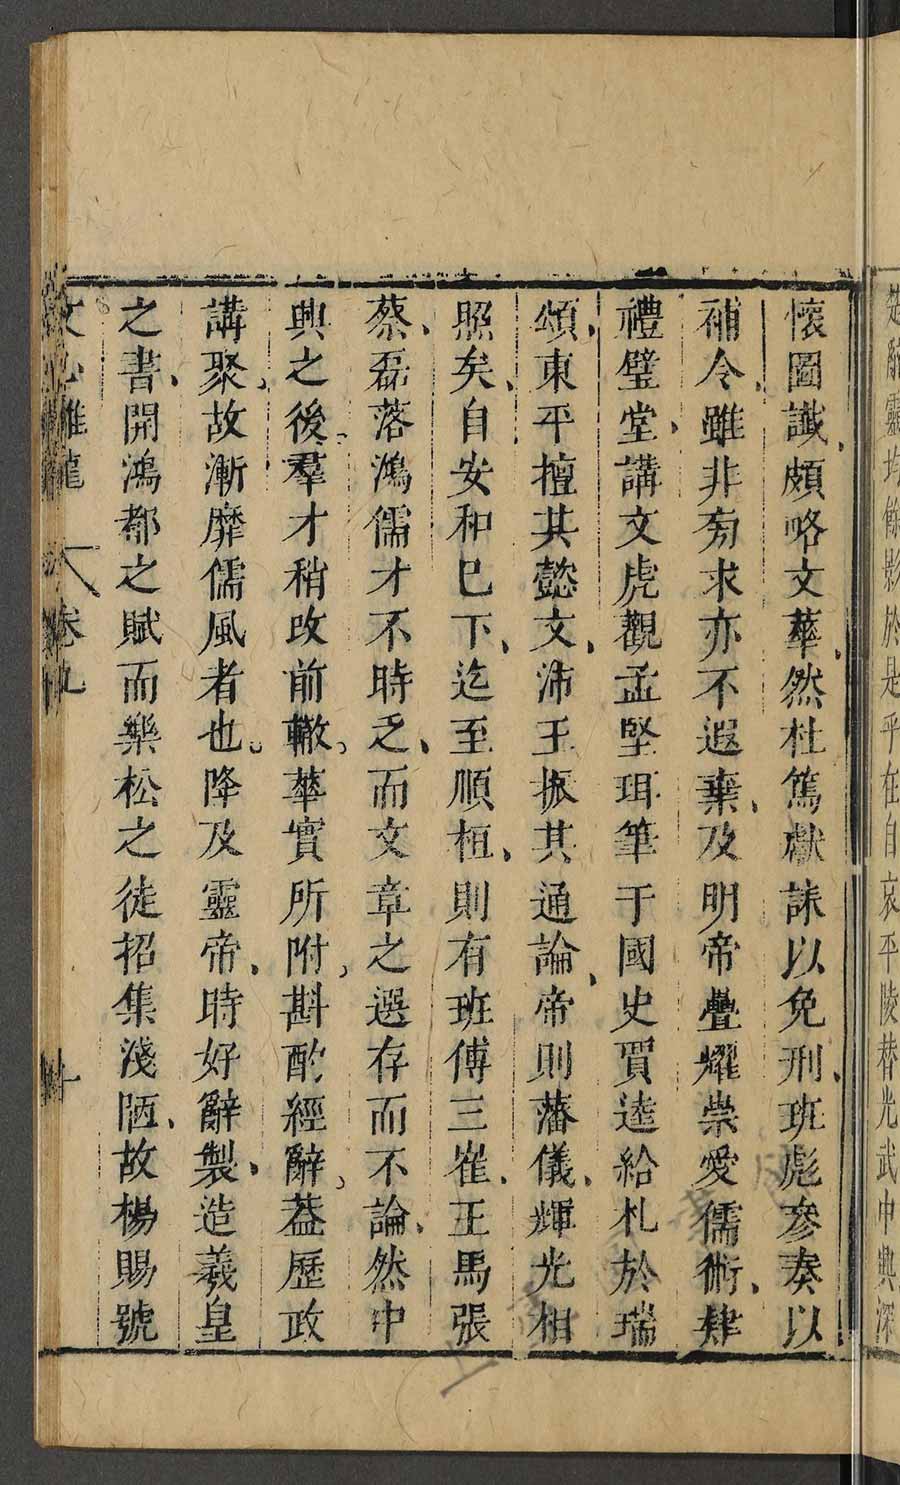 楚辭靈均餘影於是乎在自哀平陵替光武中興深
懷圖讖頗略文華然杜篤獻誄以免刑班彪參奏以
補令雖非旁求亦不遐棄及明帝疊耀崇愛儒術肄
禮璧堂講文虎觀孟堅珥筆于國史賈逵給札於瑞
頌東平擅其懿文沛王振其通論帝則藩儀輝光相
照矣自安和已下迄至順桓則有班傅三崔王馬張
蔡磊落鴻儒才不時乏而文章之選存而不論然中
興之後羣才稍改前轍華實所附斟酌經辭葢歷政
講聚故漸靡儒風者也降及靈帝時好辭製造羲皇
之書開鴻都之賦而樂松之徒招集淺陋故楊賜號
文心雕龍 卷九 十